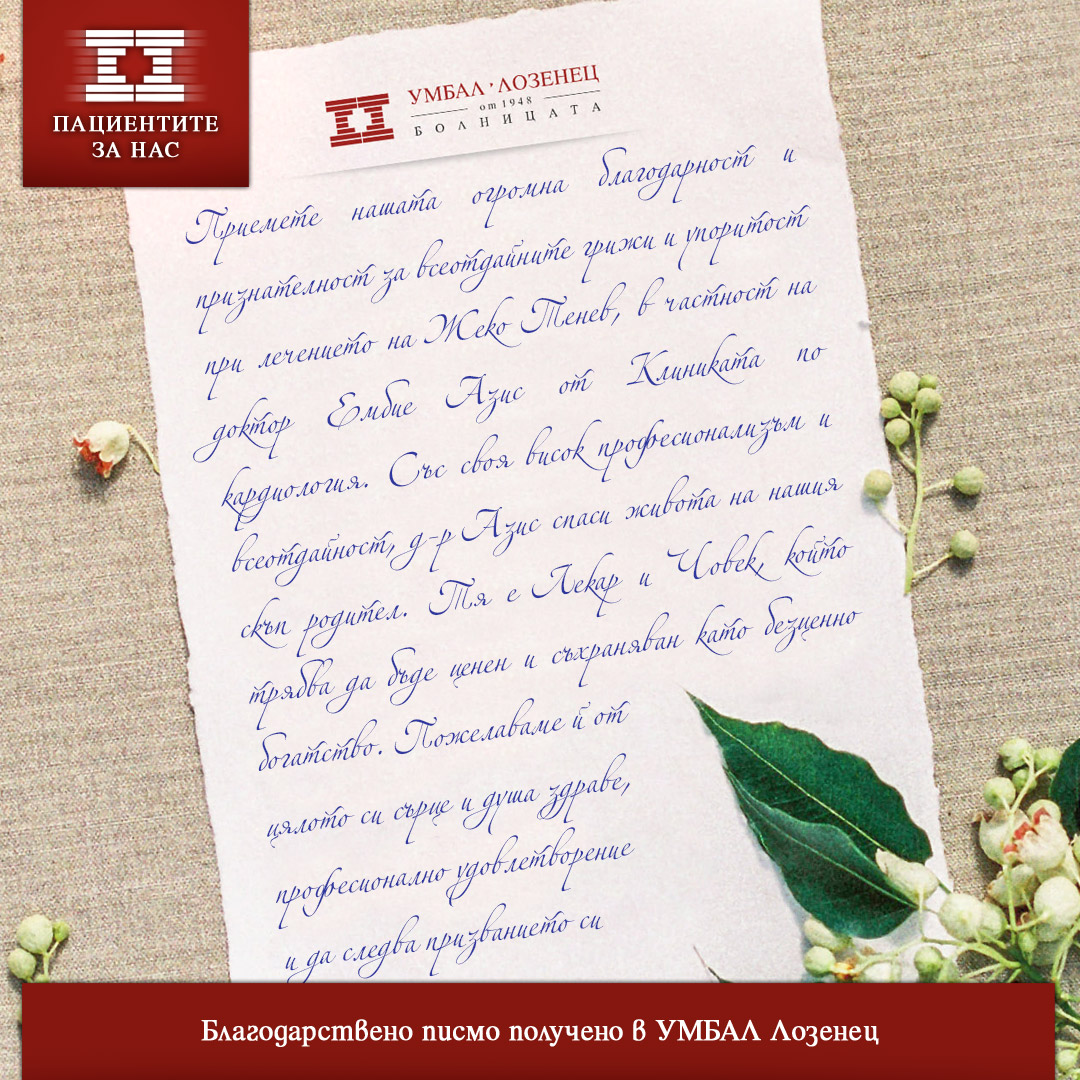 ПАЦИЕНТИТЕ
ЗА НАС
УМБАЛ · ЛОЗЕНЕЦ
от 1948
БОЛНИЦАТА
Приемете нашата огромна благодарност и
признателност за всеотдайните грижи и упоритост
при лечението на Жеко Тенев, в частност на
доктор Ембие Азис от Клиниката по
кардиология. Със своя висок професионализъм и
всеотдайност, д-р Азис спаси живота на нашия
скъп родител. Тя е Лекар и Човек, който
трябва да бъде ценен и съхраняван като безценно
богатство. Пожелаваме й от
цялото си сърце и душа здраве,
професионално удовлетворение
и да следва призванието си
Благодарствено писмо получено в УМБАЛ Лозенец